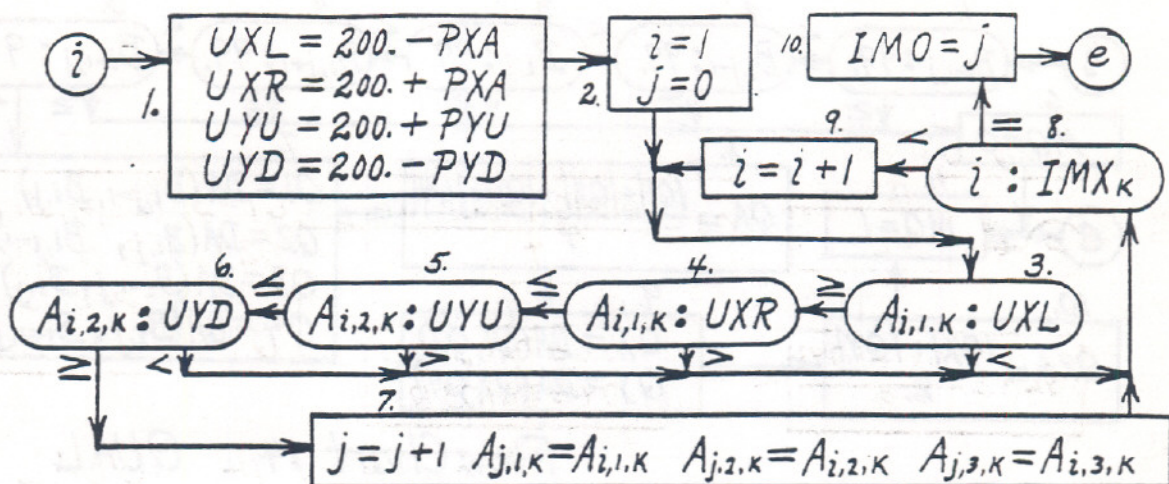 i
1.
UXL = 200. - PXA
UXR = 200. + PXA
UYU = 200. + PYU
UYD = 200. - PYD
2.
i = 1
j = 0
10.
IMO = j
e
9.
i = i + 1
< = 8.
i : IMXK
3.
Ai,1.K : UXL
≥ <
4.
Ai,1,K : UXR
≤ >
5.
Ai,2,K : UYU
≤ >
6.
Ai,2,K : UYD
≥ <
7.
j = j+1 Aj,1,K = Ai,1,K Aj.2,K = Ai,2,K Aj,3,K = Ai,3,K